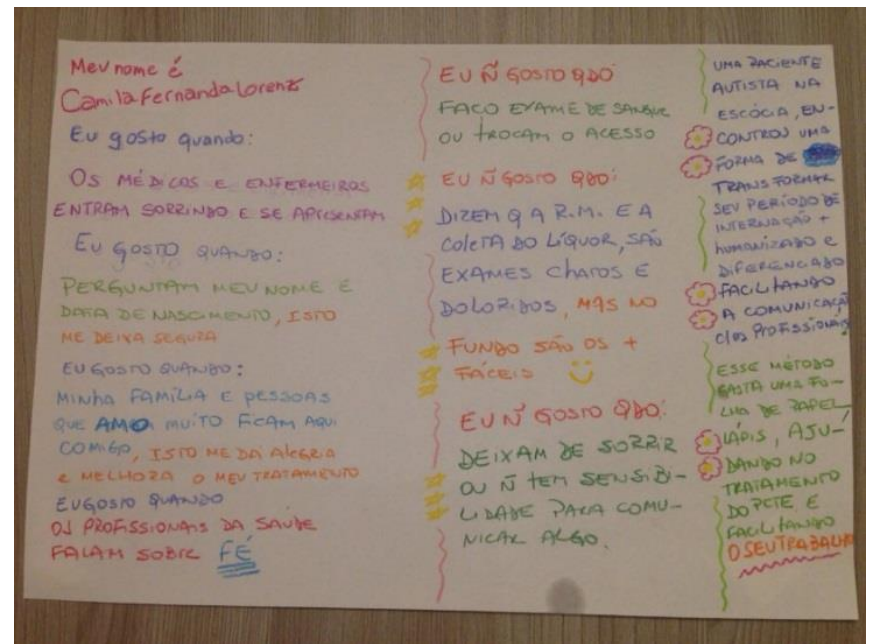 Meu nome é
Camila Fernanda Lorenz
Eu gosto quando:
OS MÉDICOS E ENFERMEIROS
ENTRAM SORRINDO E SE APRESENTAM
EU GOSTO QUANDO:
PERGUNTAM MEU NOME E
DATA DE NASCIMENTO, ISTO
ME DEIXA SEGURA
EU GOSTO QUANDO:
MINHA FAMÍLIA E PESSOAS
QUE AMO MUITO FICAM AQUI
COMIGO, ISTO ME DÁ ALEGRIA
E MELHORA O MEU TRATAMENTO
EU GOSTO QUANDO
OS PROFISSIONAIS DA SAÚDE
FALAM SOBRE FÉ
EU Ñ GOSTO QDO
FAÇO EXAME DE SANGUE
OU TROCAM O ACESSO
EU Ñ GOSTO QDO:
DIZEM Q A R.M. E A
COLETA DO LÍQUOR, SÃO
EXAMES CHATOS E
DOLORIDOS, MAS NO
FUNDO SÃO OS +
FÁCEIS
EU Ñ GOSTO QDO:
DEIXAM DE SORRIR
OU Ñ TEM SENSIBI-
LIDADE PARA COMU-
NICAR ALGO.
UMA PACIENTE
AUTISTA NA
ESCÓCIA, EN-
CONTROU UMA
FORMA DE
TRANSFORMAR
SEU PERÍODO DE
INTERNAÇÃO +
HUMANIZADO E
DIFERENCIADO
FACILITANDO
A COMUNICAÇÃO
C/OS PROFISSIONAIS
ESSE MÉTODO
GASTA UMA FO-
LHA DE PAPEL
LÁPIS, AJU-
DANDO NO
TRATAMENTO
DO PCTE E
FACILITANDO
O SEU TRABALHO